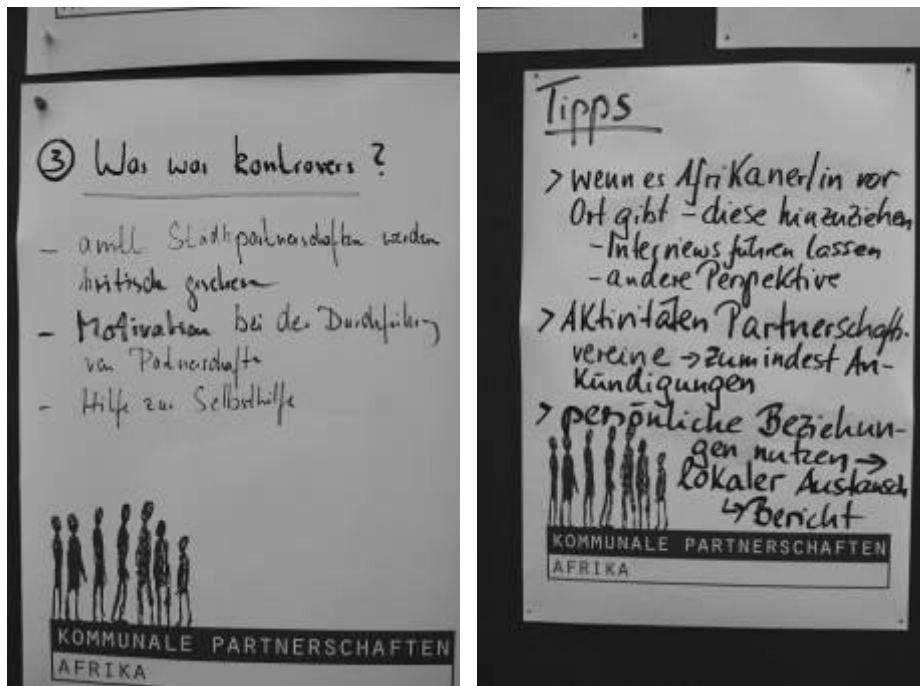 ③ Was war kontrovers?
- amtl. Städtepartnerschaften werden
kritisch gesehen
- Motivation bei der Durchführung
von Partnerschaften
- Hilfe zur Selbsthilfe
KOMMUNALE PARTNERSCHAFTEN
AFRIKA
Tipps
> wenn es Afrikaner/in vor
Ort gibt - diese hinzuziehen
- Interviews führen lassen
- andere Perspektive
> Aktivitäten Partnerschafts-
vereine → zumindest An-
kündigungen
> persönliche Beziehun-
gen nutzen →
lokaler Austausch
↳ Bericht
KOMMUNALE PARTNERSCHAFTEN
AFRIKA